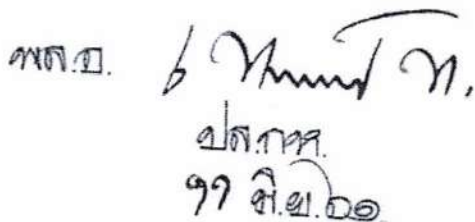 พล.อ.
ปล.กห.
๑๑ มิ.ย.๖๑